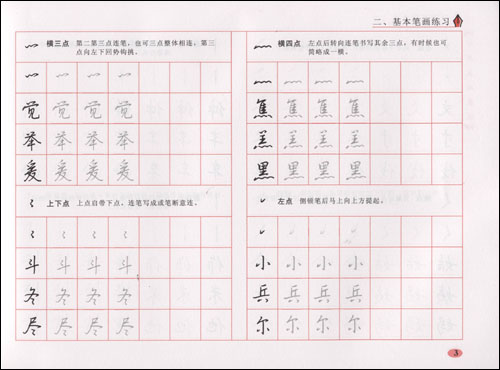 二、基本笔画练习
横三点 第二第三点连笔，也可三点整体相连，第三
点向左下回势钩挑。
觉 觉 觉 觉
举 举 举 举
上下点 上点自带下点，连笔写成或笔断意连。
斗 斗 斗 斗
冬 冬 冬 冬
尽 尽 尽 尽
横四点 左点后转向连笔书写其余三点，有时候也可
简略成一横。
焦 焦 焦 焦
羔 羔 羔 羔
黑 黑 黑 黑
左点 侧顿笔后马上向上方提起。
小 小 小 小
兵 兵 兵 兵
尔 尔 尔 尔
3